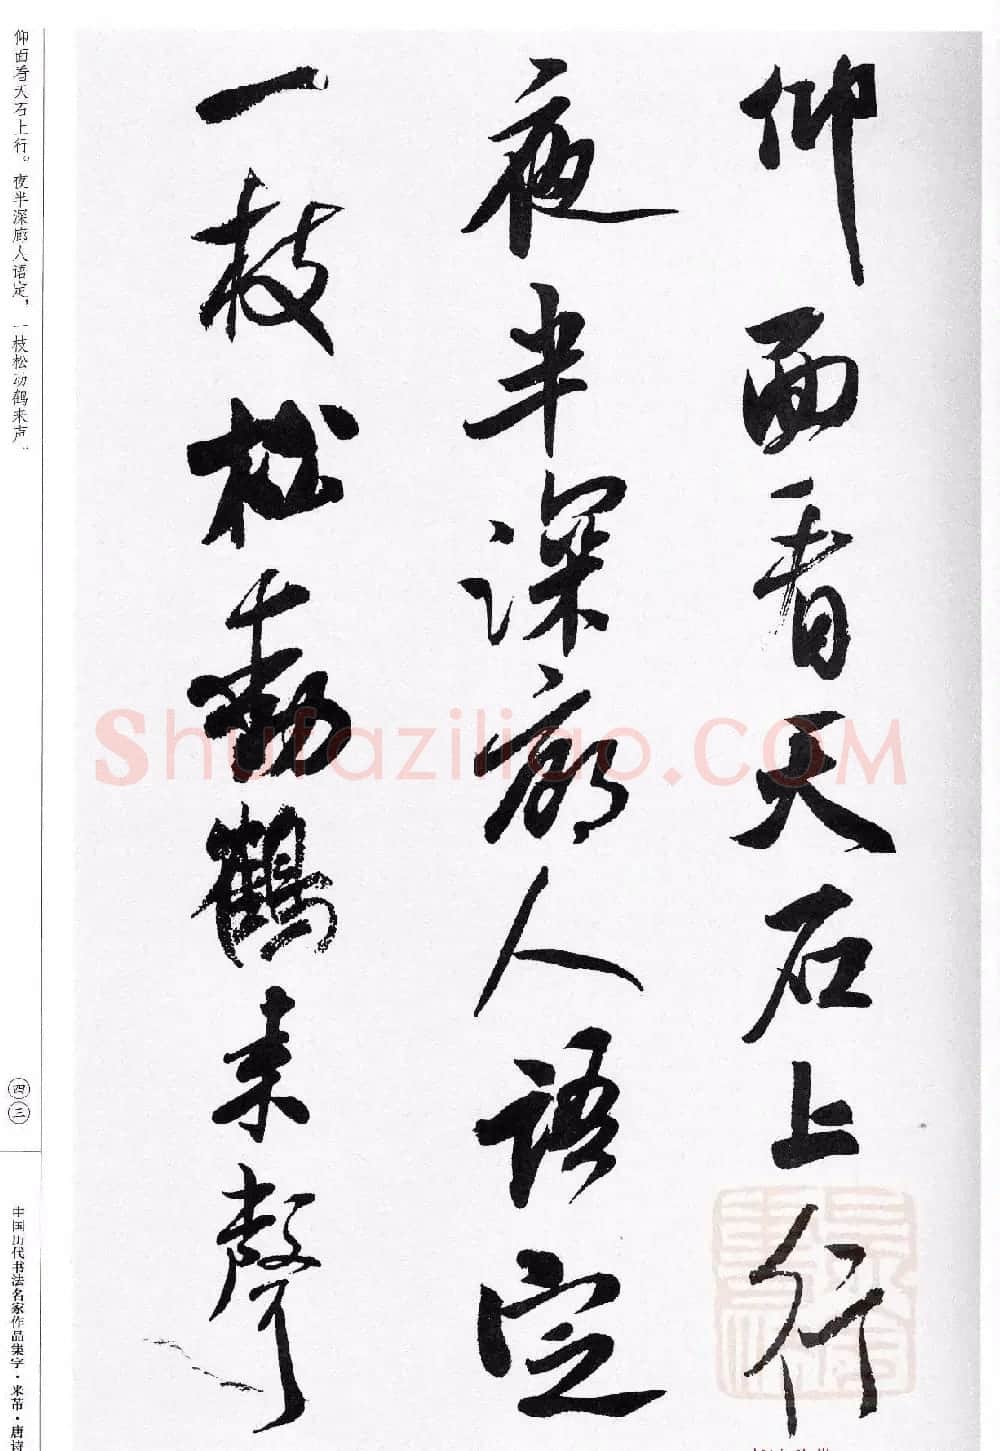 仰面看天石上行
夜半深廊人语定
一枝松動鶴来聲
仰面看天石上行。夜半深廊人语定，一枝松动鹤来声。
四三
中国历代书法名家作品集字·米芾·唐诗
Shufaziliao.COM